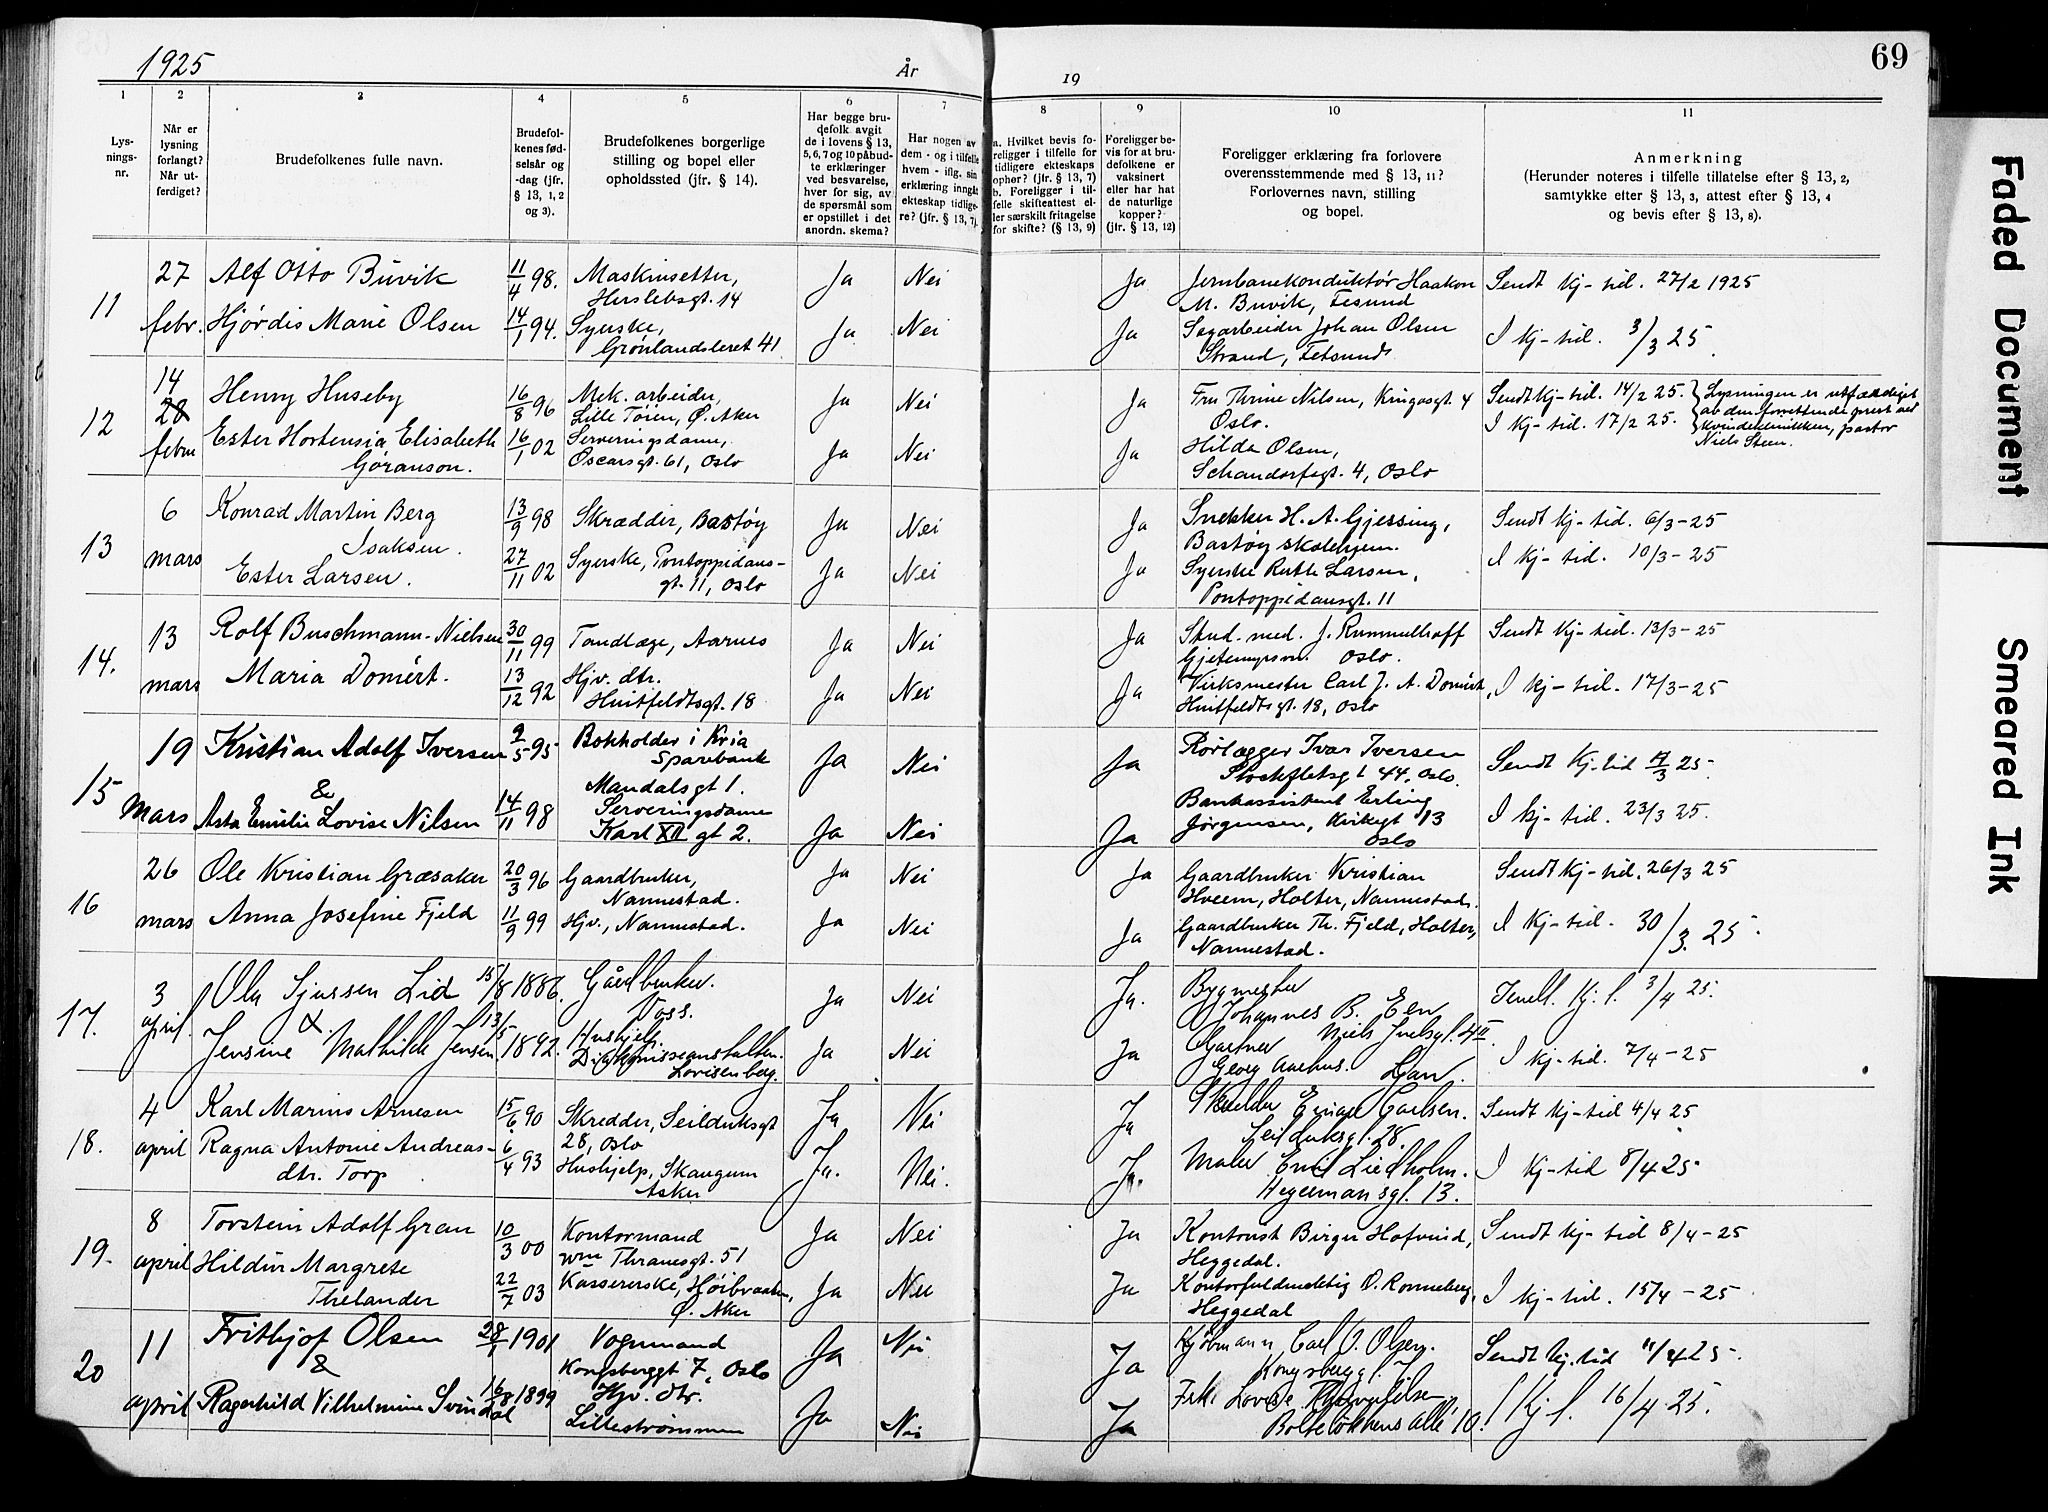 1925
År
19
69
1
2
3
4
5
6
7
8
9
10
11
Lys-
nings-
nr.
Når er
lysning
forlangt?
Når ut-
ferdiget?
Brudefolkenes fulle navn.
Brudefol-
kenes fød-
selsår og
-dag (jfr.
§ 13, 1, 2
og 3).
Brudefolkenes borgerlige
stilling og bopel eller
opholdssted (jfr. § 14).
Har begge bru-
defolk avgit
de i lovens § 13,
5, 6, 7 og 10 påbud-
te erklæringer
ved besvarelse,
hver for sig, av
de spørsmål som
er opstillet i det
anordn. skema?
Har nogen av
dem - og i tilfelle
hvem - iflg. sin
erklæring inngåt
ekteskap tidlige-
re? (jfr. § 13, 7).
a. Hvilket bevis fo-
religger i tilfelle for
tidligere ekteskaps
ophør? (jfr. § 13, 7)
b. Foreligger i til-
felle skifteattest el-
ler særskilt fritagelse
for skifte? (§ 13, 9)
Foreligger be-
vis for at bru-
defolkene er
vaksinert
eller har hat
de naturlige
kopper?
(jfr. § 13, 12)
Foreligger erklæring fra forlovere
overensstemmende med § 13, 11?
Forlovernes navn, stilling
og bopel.
Anmerkning
(Herunder noteres i tilfelle tillatelse efter § 13, 2,
samtykke efter § 13, 3, attest efter § 13, 4
og bevis efter § 13, 8).
27 Alf Otto Buvik 11/4 98. Maskinsetter, Ja Nei Ja Jernbanekonduktør Haakon Sendt Kj-tid. 27/2 1925
11 Herslebsgt. 14 M. Buvik, Fetsund
febr. Hjørdis Marie Olsen 14/1 94. Syerske, Ja Nei Ja Sagarbeider Johan Olsen I Kj-tid. 3/3 25.
Grønlandsleret 41 Strand, Fetsund
14 Henry Huseby 16/8 96 Mek. arbeider, Ja Nei Ja Fru Thrine Nilsen, Kingosgt. 4 Sendt Kj-tid. 14/2 25. Lysningen er utfærdiget
12 28 Lille Tøien, Ø. Aker Oslo. I Kj-tid. 17/2 25. av den forrettende prest ved
febru Ester Hortensia Elisabeth 16/1 02 Serveringsdame, Ja Nei Ja Hilda Olsen, Kvindeklinikken, pastor
Gøranson. Oscarsgt. 61, Oslo Schandorfsgt. 4, Oslo Niels Steen.
6 Konrad Martin Berg 13/9 98 Skrædder, Bastøy Ja Nei Ja Snekker H. A. Gjessing, Sendt Kj-tid. 6/3-25
13 Isaksen. Bastøy skolehjem.
mars Ester Larsen. 27/11 02 Syerske, Pontoppidans- Ja Nei Ja Syerske Ruth Larsen, I Kj-tid. 10/3-25
gt. 11, Oslo Pontoppidansgt. 11
13 Rolf Buschmann-Nielsen 30/11 99 Tandlæge, Aarnes Ja Nei Ja Stud. med. J. Rummelhoff Sendt Kj-tid. 13/3-25
14. Gjetemyrsvn. Oslo.
mars Maria Domért. 13/12 92 Hjv. dtr. Ja Nei Ja Virksmester Carl J. A. Domért, I Kj-tid. 17/3-25
Huitfeldtsgt. 18 Huitfeldtsgt. 18, Oslo
19 Kristian Adolf Iversen 9/5 95 Bokholder i Kria Ja Nei Ja Rørlægger Ivar Iversen Sendt Kj-tid 19/3 25
Sparebank Stockfletsgt 44. Oslo.
15 & Mandalsgt 1.
Mars Asta Emilie Lovise Nilsen 14/11 98 Serveringsdame Ja Nei Ja Bankassistent Erling I Kj-tid. 23/3 25.
Karl XII gt 2. Jørgensen, Kirkegt 13
Oslo
26 Ole Kristian Græsaker 20/3 96 Gaardbruker, Ja Nei Ja Gaardbruker Kristian Sendt Kj-tid. 26/3 25
16 Nannestad. Hveem, Holter, Nannestad.
mars Anna Josefine Fjeld 11/9 99 Hjv., Nannestad. Ja Nei Ja Gaardbruker Th. Fjeld, Holter, I Kj-tid. 30/3. 25.
Nannestad.
3 Ola Sjurssen Lid 15/8 1886. Gårdbruker. Ja Nei Ja. Bygmester 3/4 25.
17. & Voss. Johannes B. Eln
april. Jensine Mathilde Jensen. 13/5 1892. Hushjelp. Ja Nei Ja Niels Juelsgt. 4 II.
Diakonisseanstalten. Gartner I Kj-tid. 7/4-25
Lovisenberg. Georg Aarhus. Ljan.
4 Karl Marius Arnesen 15/6 90 Skredder, Seilduksgt Ja Nei Ja Skredder Einar Carlsen. Sendt Kj-tid 4/4 25
18. 28, Oslo Seilduksgt. 28.
april Ragna Antonie Andreas- 6/4 93 Hushjelp, Skaugum Ja. Nei. Ja. Maler Emil Liedholm. I Kj-tid 8/4 25
dtr. Torp Asker Hegermansgt. 13.
8 Torstein Adolf Gran 10/3 00 Kontormand Ja Nei Ja Kontorist Birger Hofvind, Sendt Kj-tid 8/4-25
19. wm Thranesgt. 51 Heggedal.
april Hildur Margrete 22/7 03 Kassererske, Høibraaten, Ja Nei Ja Kontorfuldmektig O. Ronneberg, I Kj-tid. 15/4-25
Thelander Ø. Aker Heggedal
11 Frithjof Olsen 28/1 1901 Vognmand Ja Nei Ja Kjøbmann, Carl O. Olsen. Sendt Kj.tid 11/4 25.
20 & Kongsberggt 7, Oslo Kongsberggt. 7.
april Ragnhild Vilhelmine Svindal 16/8 1899 Hjv. dtr. Ja Nei Ja Frk. Lovise I Kj t. 16/4 25.
Lillestrømmen Bolteløkkens allé 10.
Faded Document
Smeared Ink